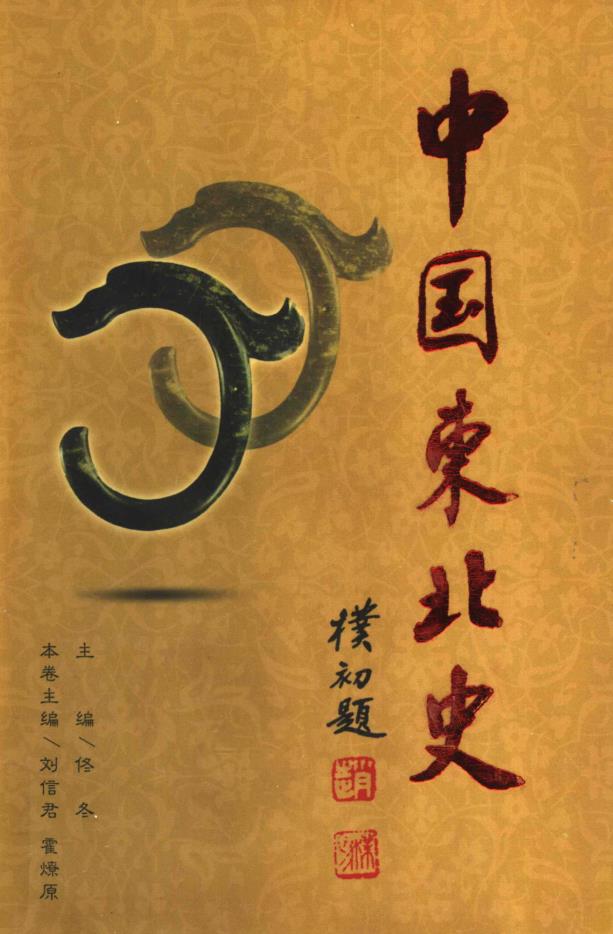 中国東北史
樸初題
趙
樸初
主 编/佟 冬
本卷主编/刘信君 霍燎原